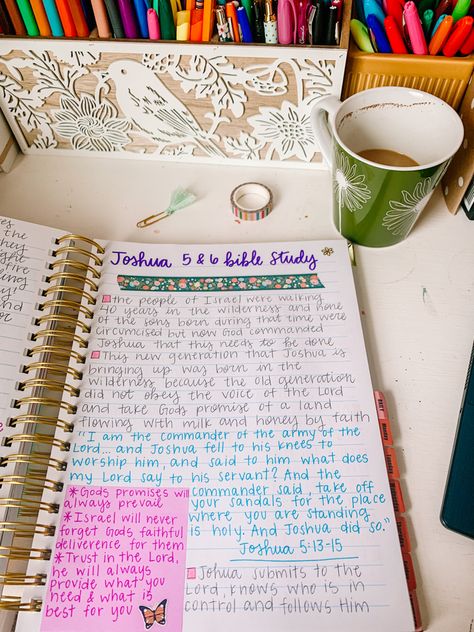 Joshua 5 & 6 Bible Study
the people of Israel were walking
40 years in the wilderness and none
of the sons born during that time were
circumcised but now God commanded
Joshua that this needs to be done
This new generation that Joshua is
bringing up was born in the
wilderness because the old generation
did not obey the voice of the Lord
and take Gods promise of a land
flowing with milk and honey by faith
"I am the commander of the army of the
Lord... and Joshua fell to his knees to
worship him, and said to him what does
my Lord say to his servant? And the
commander said, take off
your sandals for the place
where you are standing
is holy. And Joshua did so."
Joshua 5:13-15
*Gods promises will
always prevail
*Israel will never
forget Gods faithful
deliverence for them
*Trust in the Lord,
he will always
provide what you
need & what is
best for you
Joshua submits to the
Lord, knows who is in
control and follows Him